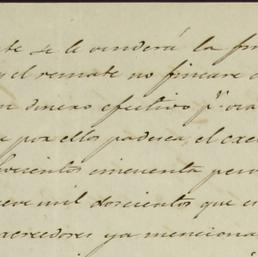 te se le venderá la fin
y el remate no fincare
en dinero efectivo pr.
a por ellos padesca, el exc
bscientos cincuenta pes
ueve mil doscientos que
acreedores ya menciona